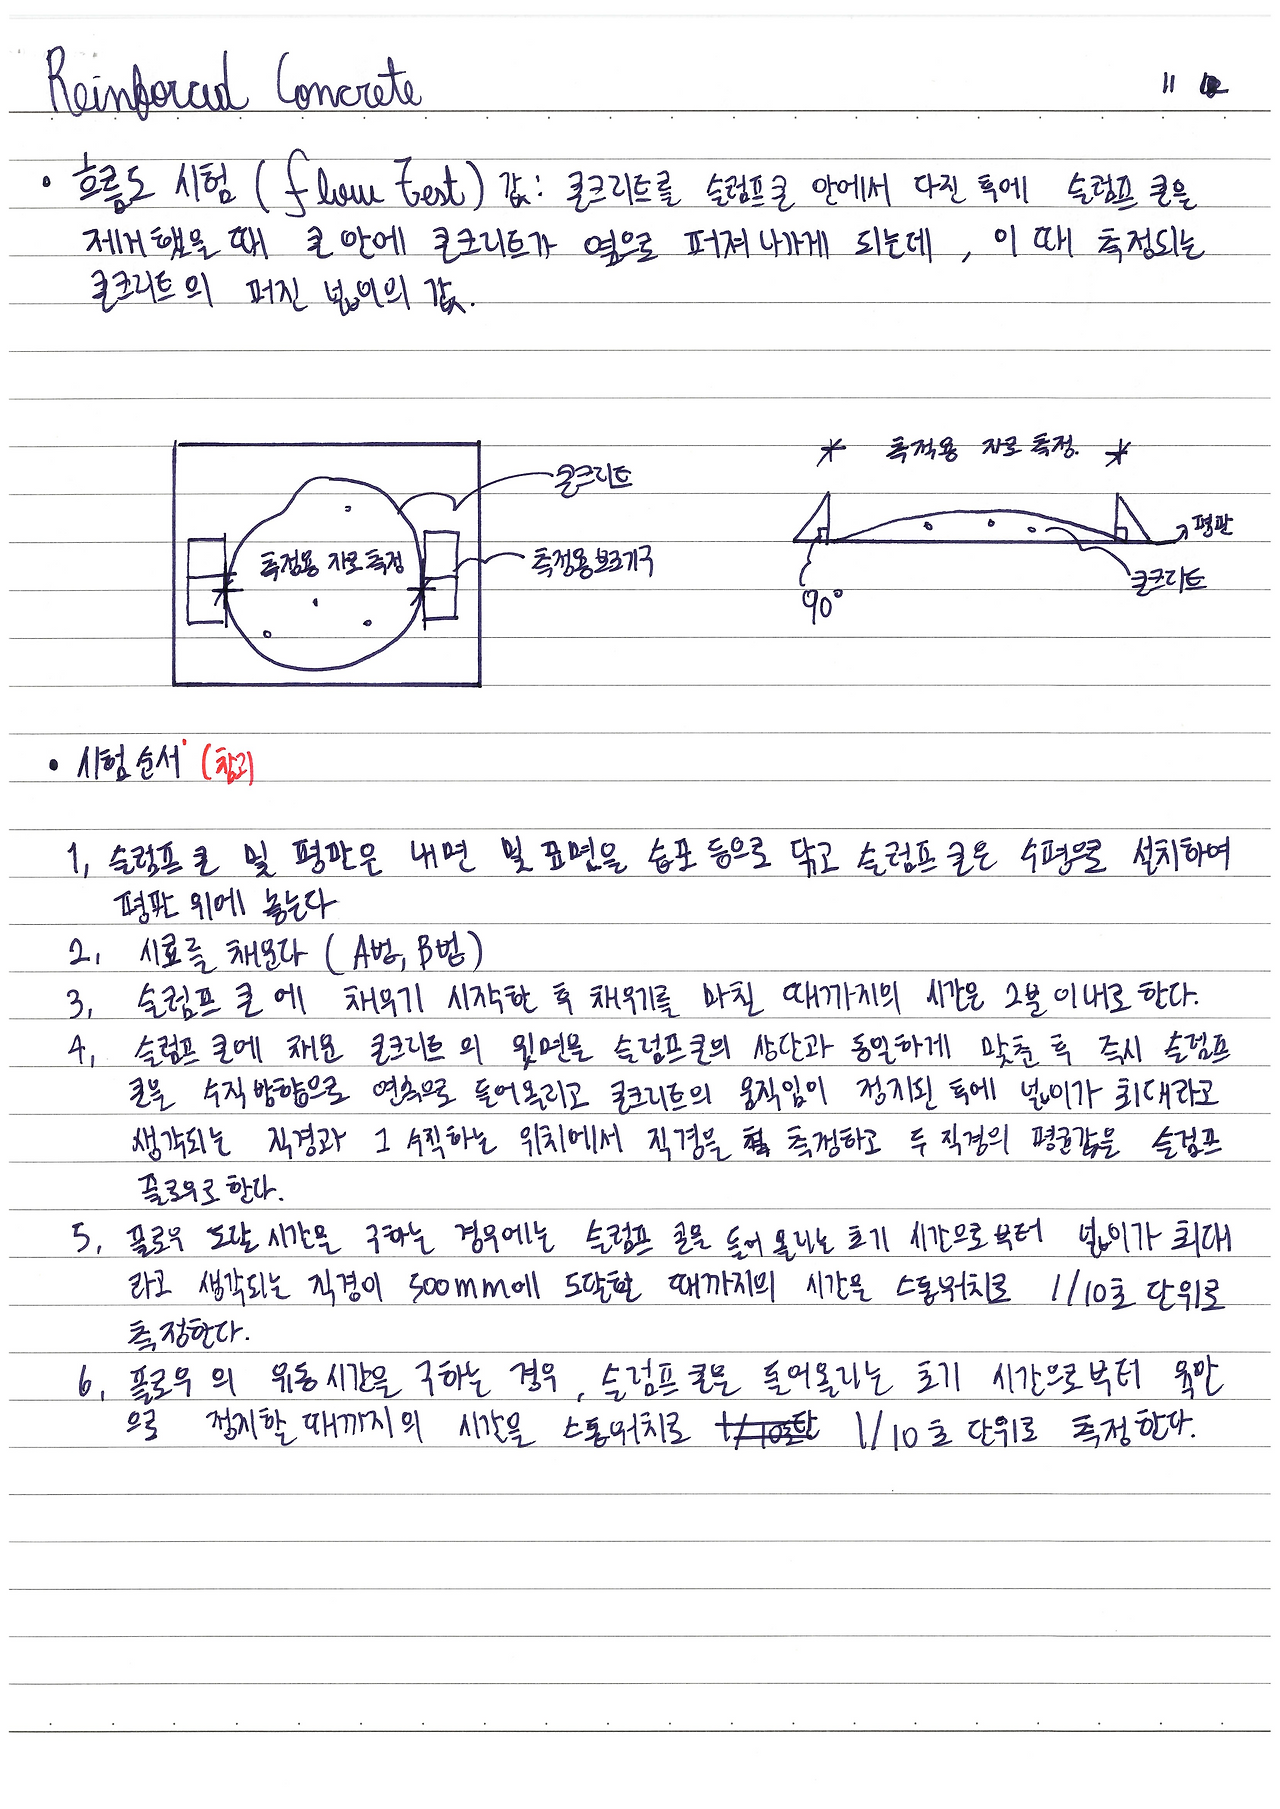 Reinforced Concrete 11
• 흐름도 시험 (flow test) 값: 콘크리트를 슬럼프콘 안에서 다진 후에 슬럼프 콘을
제거 했을 때 콘 안에 콘크리트가 옆으로 퍼져나가게 되는데, 이 때 측정되는
콘크리트의 퍼진 넓이의 값.
측적용 자로 측정.
콘크리트
평판
측정용 자로 측정
측정용보조기구
콘크리트
90°
• 시험순서 (참고)
1, 슬럼프 콘 및 평판은 내면 및 표면을 습포 등으로 닦고 슬럼프 콘은 수평으로 설치하여
평판 위에 놓는다
2, 시료를 채운다 (A법, B법)
3, 슬럼프 콘에 채우기 시작한 후 채우기를 마칠 때까지의 시간은 2분 이내로 한다.
4, 슬럼프 콘에 채운 콘크리트의 윗면을 슬럼프콘의 상단과 동일하게 맞춘 후 즉시 슬럼프
콘을 수직방향으로 연속으로 들어올리고 콘크리트의 움직임이 정지된 후에 넓이가 최대라고
생각되는 직경과 그 수직하는 위치에서 직경을 측정하고 두 직경의 평균값을 슬럼프
플로우로 한다.
5, 플로우 도달 시간을 구하는 경우에는 슬럼프 콘을 들어 올리는 초기 시간으로부터 넓이가 최대
라고 생각되는 직경이 500mm에 도달할 때까지의 시간을 스톱워치로 1/10초 단위로
측정한다.
6, 플로우의 유동시간을 구하는 경우, 슬럼프콘을 들어올리는 초기 시간으로부터 육안
으로 정지할 때까지의 시간을 스톱워치로 1/10초 단위로 측정한다.